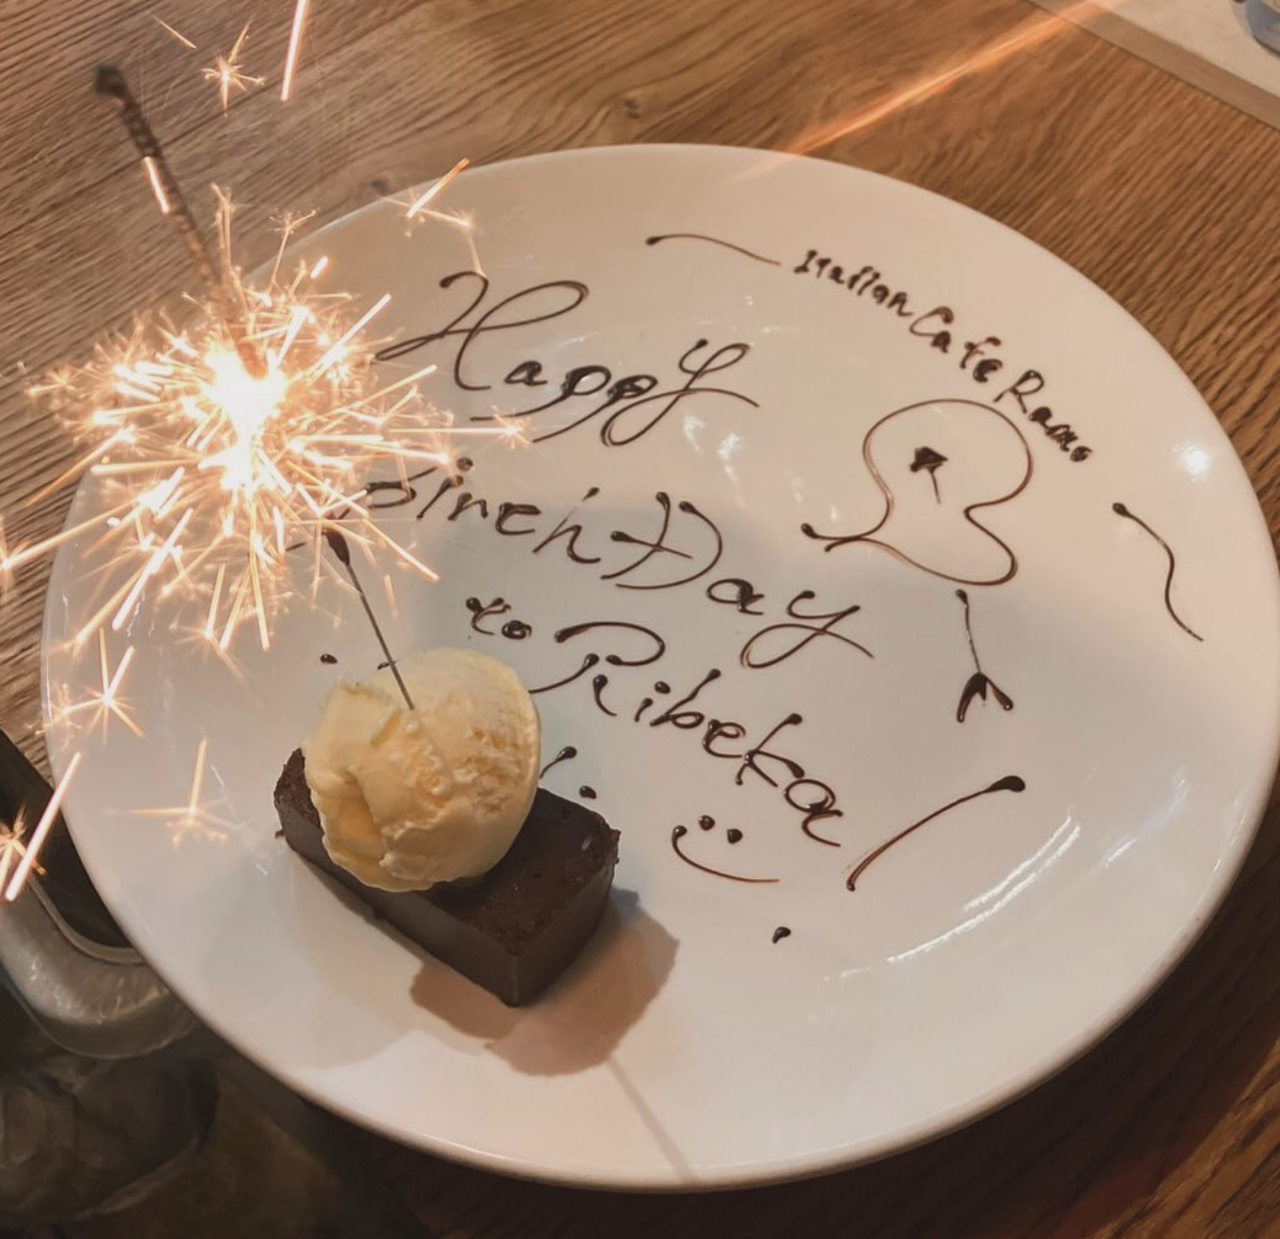 Italian Cafe
Happy
birth Day
to Ribeka!